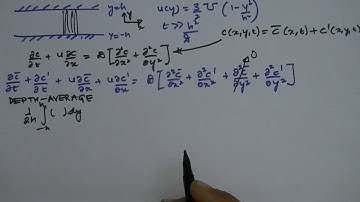 y=h
y
x
y=-h
u(y) = 3/2 U (1-y²/h²)
t >> h²/D
c(x,y,t) = c̄(x,t) + c'(x,y,t)
∂c/∂t + u ∂c/∂x = D [∂²c/∂x² + ∂²c/∂y²]
0
∂c̄/∂t + ∂c'/∂t + u ∂c̄/∂x + u ∂c'/∂x = D [∂²c̄/∂x² + ∂²c'/∂x² + ∂²c̄/∂y² + ∂²c'/∂y²]
DEPTH-AVERAGE
1/2h ∫₋ₕʰ ( ) dy